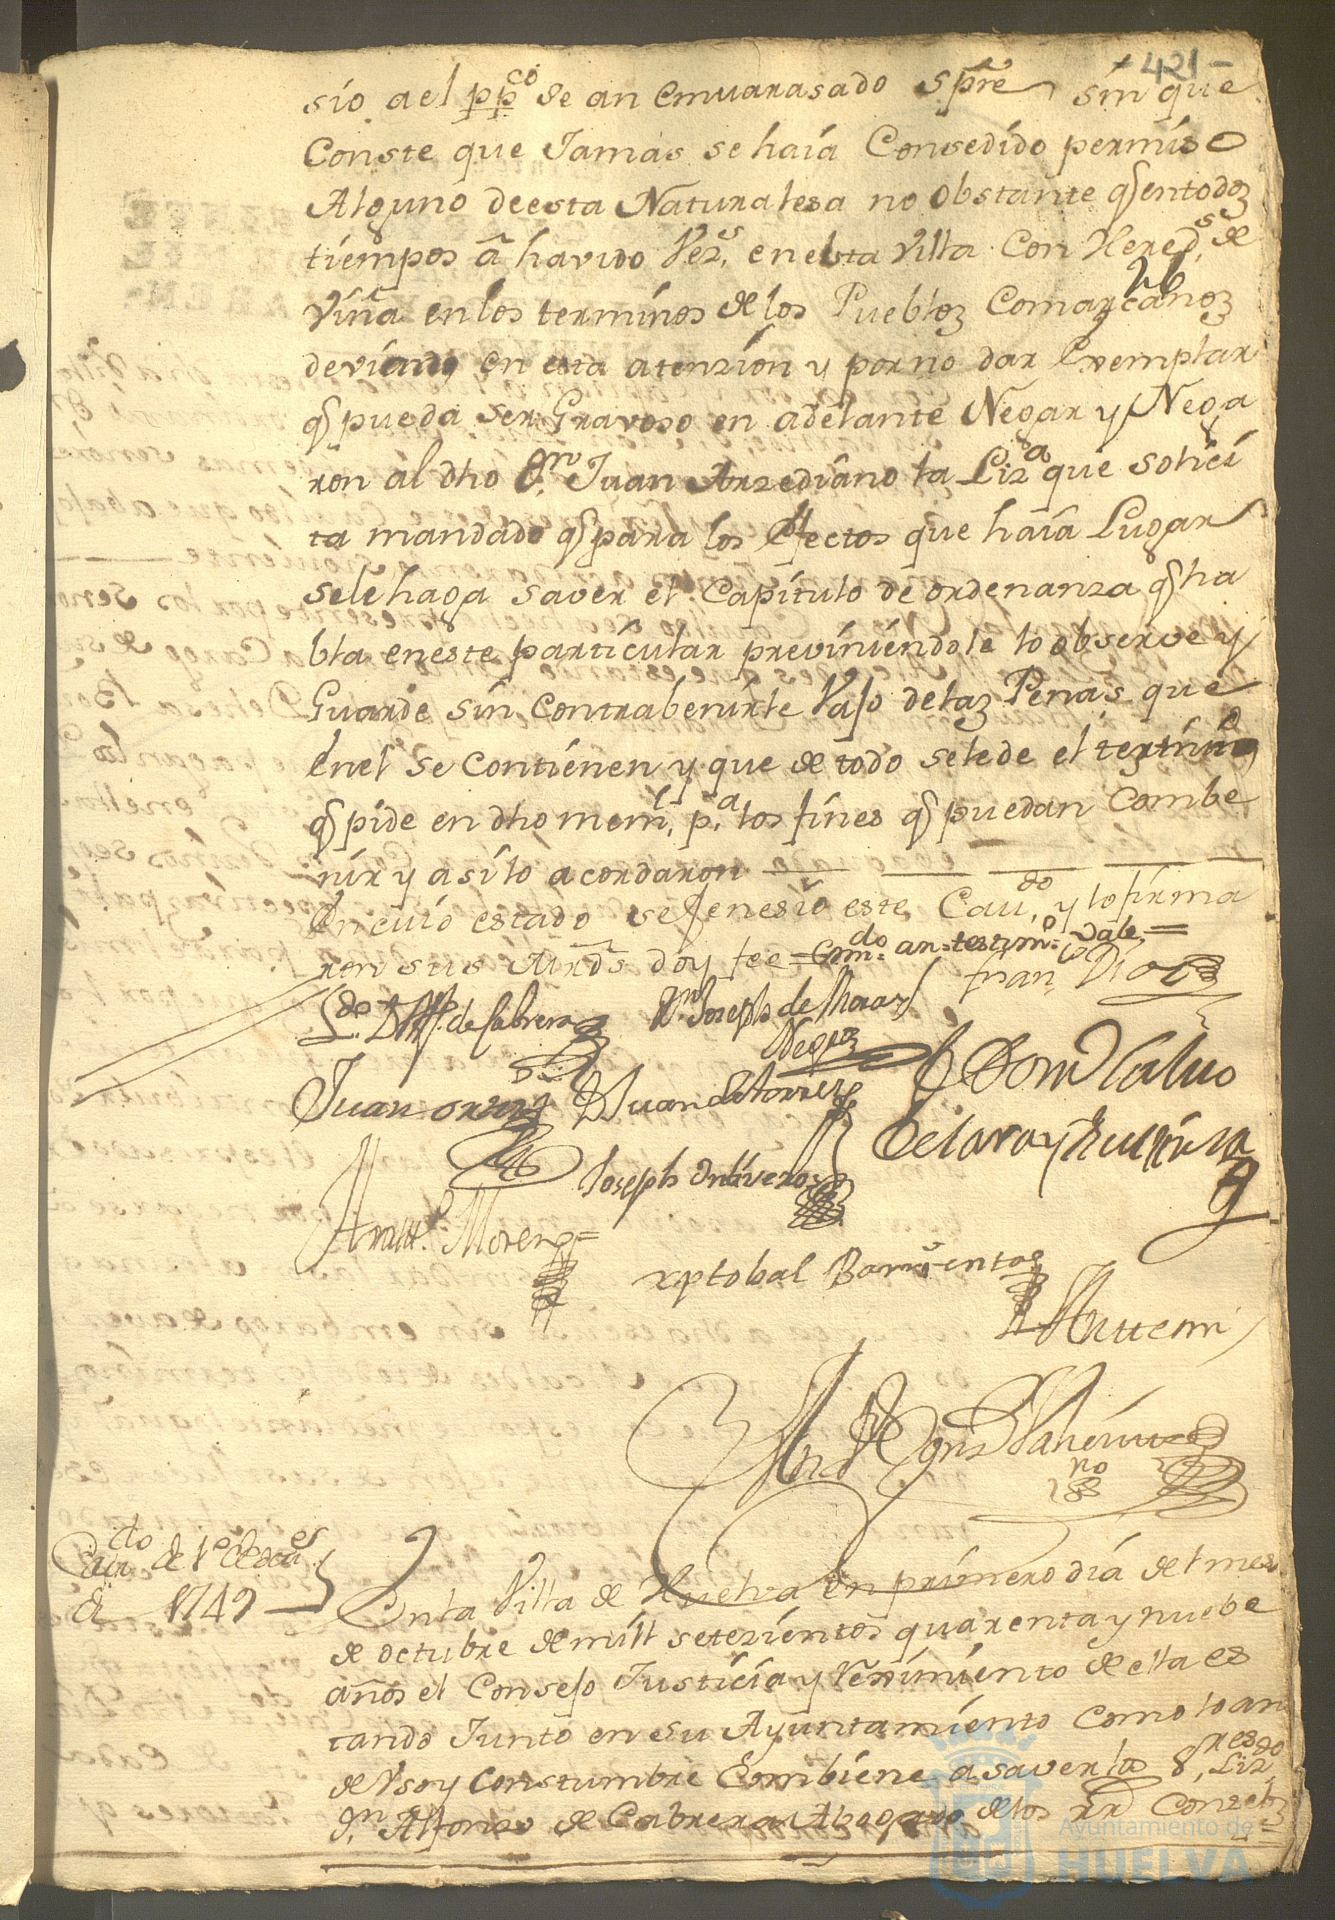 - 421 -
sio a el ppco se an emuarasado spre sin que
Conste que Jamas se haia Consedido permiso
Alguno de esta Naturalesa no Obstante q̃ en todos
tiempos ã havido Vezs. en esta Villa Con Hereds. de
Viña en los terminos de los Pueblos Comarcanos
deviendo en esta atenzion y por no dar Exemplar
q̃ pueda ser Gravoso en adelante Negar y Nega
ron al dho Dn. Juan Arzediano la Liza que solici
ta mandado q̃ para los Efectos que haia Lugar
se le haga saver el Capitulo de ordenanza q̃ ha
bla en este particular previniendole lo observe y
Guarde sin Contrabenirle Vajo de las Penas que
En el se Contienen y que de todo se le de el testimo
q̃ pide en dho meml. pa. los fines q̃ puedan Combe
nir y asi lo acordaron
En cuio estado se fenesio este Cavdo. y lo firma
ron sus mrds doy fee = Comdo. an = testimo. vale =
Fran.co Dias
Ldo. D Alfo. de Cabrera Dn. Joseph de Moras
Negros
Juan Ortiz D Juan de Torres D Domo Calvo
de Lara y
Joseph Ontiveros
Moreno =
xptobal Barrientos
Ante mi
no
Cavdo. de 1o. de Octues.
de 1749
En la Villa de Huelva en primero dia del mes
de octubre de mill setezientos quarenta y nuebe
años el Consejo Justicia y Reximiento de ella es
tando Junto en su Ayuntamiento como lo an
de Vso y Constumbre Combiene a saver los Sres. Lizdo
Dn. Alfonso de Cabrera Abogado de los rrs Conzejos =
Ayuntamiento de
HUELVA